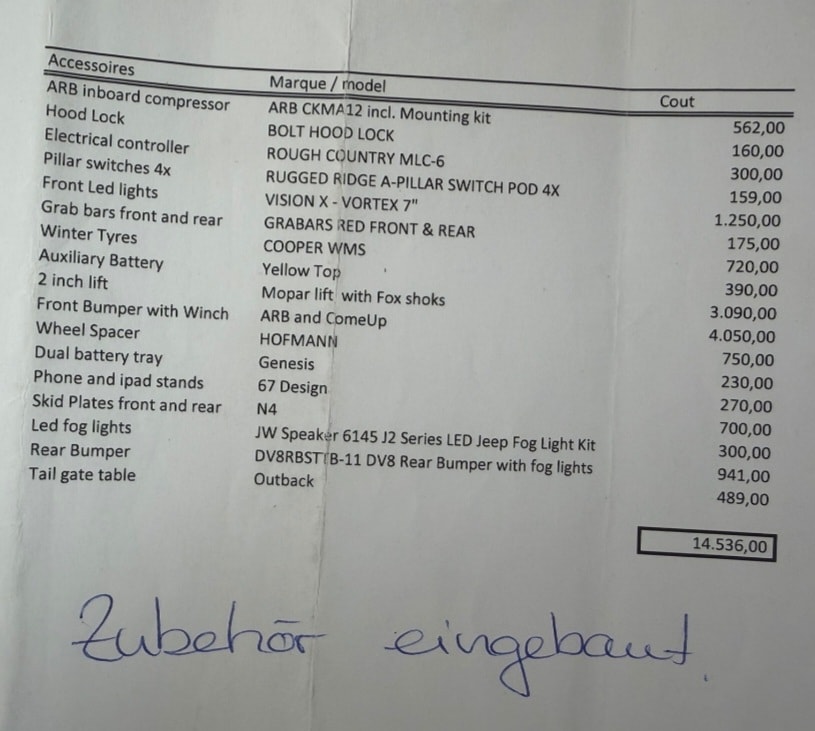 Accessoires Marque / model Cout
ARB inboard compressor ARB CKMA12 incl. Mounting kit 562,00
Hood Lock BOLT HOOD LOCK 160,00
Electrical controller ROUGH COUNTRY MLC-6 300,00
Pillar switches 4x RUGGED RIDGE A-PILLAR SWITCH POD 4X 159,00
Front Led lights VISION X - VORTEX 7" 1.250,00
Grab bars front and rear GRABARS RED FRONT & REAR 175,00
Winter Tyres COOPER WMS 720,00
Auxiliary Battery Yellow Top 390,00
2 inch lift Mopar lift with Fox shoks 3.090,00
Front Bumper with Winch ARB and ComeUp 4.050,00
Wheel Spacer HOFMANN 750,00
Dual battery tray Genesis 230,00
Phone and ipad stands 67 Design 270,00
Skid Plates front and rear N4 700,00
Led fog lights JW Speaker 6145 J2 Series LED Jeep Fog Light Kit 300,00
Rear Bumper DV8RBSTTB-11 DV8 Rear Bumper with fog lights 941,00
Tail gate table Outback 489,00
14.536,00
Zubehör eingebaut.